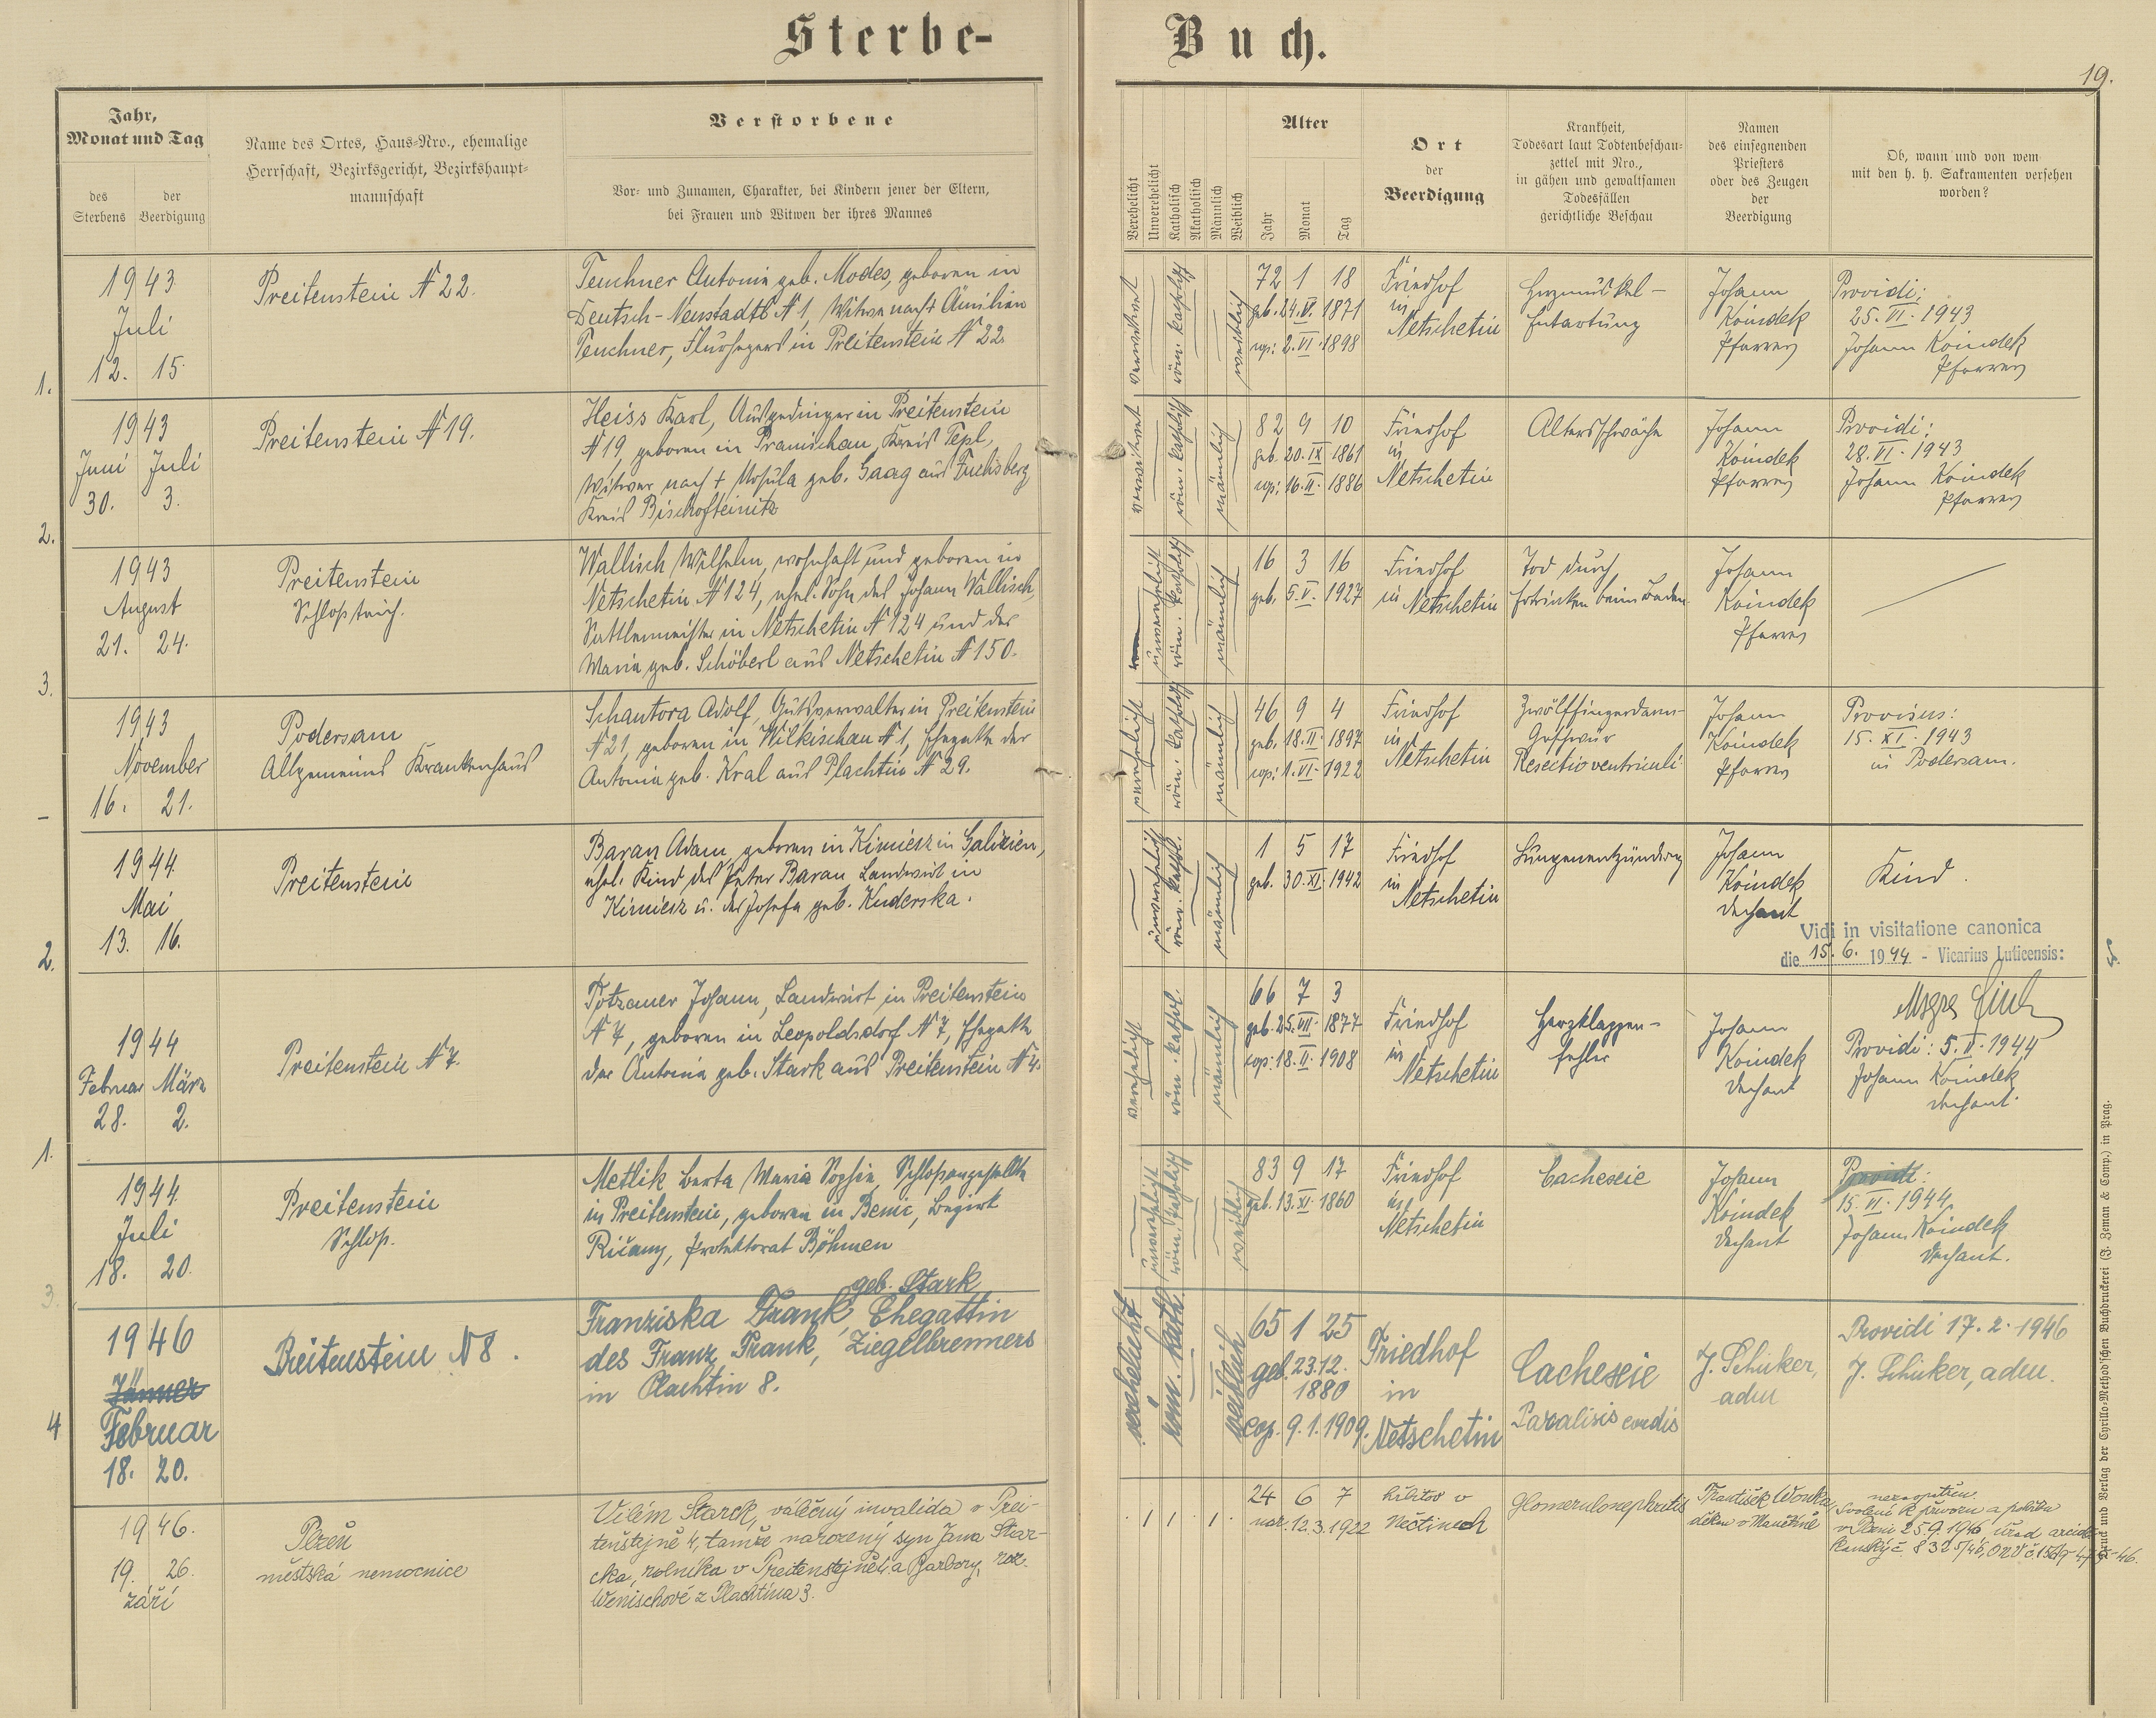 Sterbe-Buch.
19.
Jahr, Monat und Tag
des Sterbens
der Beerdigung
Name des Ortes, Haus-Nro., ehemalige
Herrschaft, Bezirksgericht, Bezirkshaupt-
mannschaft
Verstorbene
Vor- und Zunamen, Charakter, bei Kindern jener der Eltern,
bei Frauen und Witwen der ihres Mannes
Verehelicht
Unverehelicht
Katholisch
Akatholisch
Männlich
Weiblich
Alter
Jahr
Monat
Tag
Ort
der
Beerdigung
Krankheit,
Todesart laut Todtenbeschau-
zettel mit Nro.,
in gähen und gewaltsamen
Todesfällen
gerichtliche Beschau
Namen
des einsegnenden
Priesters
oder des Zeugen
der
Beerdigung
Ob, wann und von wem
mit den h. h. Sakramenten versehen
worden?
1.
1943
Juli
12. 15.
Preitenstein N 22.
Teuchner Antonie geb. Modes, geboren in
Deutsch-Neustadtl N 1, Witwe nach + Ämilian
Teuchner, Flurhegers in Preitenstein N 22.
verwitwet
röm. katholisch
weiblich
72 1 18
geb. 24.V. 1871
cop: 2.VI. 1898
Friedhof
in
Netschetin
Herzmuskel-
Entartung
Johann
Koindek
Pfarrer
Providi:
25.VI.1943
Johann Koindek
Pfarrer
2.
1943
Juni Juli
30. 3.
Preitenstein N 19.
Heiss Karl, Ausgedinger in Preitenstein
N 19, geboren in Pramischau, Kreis Tepl,
Witwer nach + Ursula geb. Gaag aus Fuchsberg
Kreis Bischofteinitz
verwitwet
röm. katholisch
männlich
82 9 10
geb. 20.IX. 1861
cop: 16.II. 1886
Friedhof
in
Netschetin
Altersschwäche
Johann
Koindek
Pfarrer
Providi:
28.VI.1943
Johann Koindek
Pfarrer
3.
1943
August
21. 24.
Preitenstein
Schlossteich.
Wallisch Wilhelm, wohnhaft und geboren in
Netschetin N 124, ehel. Sohn des Johann Wallisch,
Sattlermeister in Netschetin N 124 und der
Maria geb. Schöberl aus Netschetin N 150.
unverehelicht
röm. katholisch
männlich
16 3 16
geb. 5.V. 1927
Friedhof
in Netschetin
Tod durch
Ertrinken beim Baden
Johann
Koindek
Pfarrer
1943
November
16. 21.
Podersam
Allgemeines Krankenhaus
Schantora Adolf, Gutsverwalter in Preitenstein
N 21, geboren in Wilkischau N 1, Ehegatte der
Antonia geb. Kral aus Plachtin N 29.
verehelicht
röm. katholisch
männlich
46 9 4
geb. 18.II. 1897
cop: 1.VI. 1922
Friedhof
in
Netschetin
Zwölffingerdarm-
Geschwür
Resectio ventriculi
Johann
Koindek
Pfarrer
Provisus:
15.XI.1943
in Podersam.
2.
1944
Mai
13. 16.
Preitenstein
Baran Adam, geboren in Kimiesz in Galizien,
ehel. Kind des Peter Baran Landwirt in
Kimiesz u. der Josefa geb. Kuderska.
unverehelicht
röm. kathol.
männlich
1 5 17
geb. 30.XI. 1942
Friedhof
in
Netschetin
Lungenentzündung
Johann
Koindek
Dechant
Kind.
Vidi in visitatione canonica
die 15.6. 1944 - Vicarius Luticensis:
1.
1944
Februar März
28. 2.
Preitenstein N 7.
Potzauer Johann, Landwirt in Preitenstein
N 7, geboren in Leopoldsdorf N 7, Ehegatte
der Antonia geb. Stark aus Preitenstein N 4.
verehelicht
röm. kathol.
männlich
66 7 3
geb. 25.VII. 1877
cop: 18.II. 1908
Friedhof
in
Netschetin
Herzklappen-
fehler
Johann
Koindek
Dechant
Providi: 5.II.1944
Johann Koindek
Dechant.
3.
1944
Juli
18. 20.
Preitenstein
Schloss.
Metlik Berta Maria Sophie, Schlossangestellte
in Preitenstein, geboren in Benic, Bezirk
Ričany, Protektorat Böhmen
unverehelicht
röm. katholisch
weiblich
83 9 17
geb. 13.XI. 1860
Friedhof
in
Netschetin
Cachexie
Johann
Koindek
Dechant
Providi:
15.VI.1944
Johann Koindek
Dechant.
4
1946
Jänner
Februar
18. 20.
Preitenstein N 8.
geb. Stark
Franziska Frank, Ehegattin
des Franz Frank, Ziegelbrenners
in Plachtin 8.
verehelicht
röm. kath.
weiblich
65 1 25
geb. 23.12.
1880
cop. 9.1.1909.
Friedhof
in
Netschetin
Cachexie
Paralisis cordis
J. Schuker,
adm
Providi 17.2.1946
J. Schuker, adm.
1946.
19. 26.
září
Plzeň
městská nemocnice
Vilém Starck, válečný invalida v Prei-
tenštejně 4, tamže narozený syn Jana Star-
cka, rolníka v Preitenštejně 4 a Barbory, roz.
Wenischové z Plachtina 3.
24 6 7
nar. 12.3.1922
hřbitov v
Nečtinech
Glomerulonephritis
František Wonka,
děkan v Manětíně
nezaopatřen
Svolení k převozu a pohřbu
v Plzni 25.9.1946, úřad arciděk
Druck und Verlag der Cyrillo-Method'schen Buchdruckerei (J. Zeman & Comp.) in Prag.